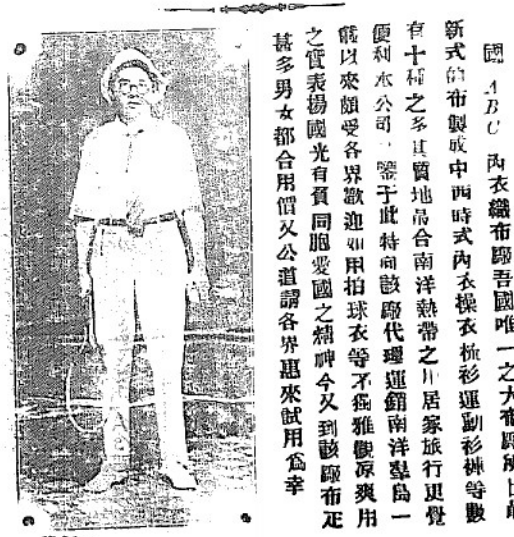 國 ABC 內衣織布廠吾國唯一之大布廠所出
新式的布製成中西時式內衣操衣恤衫運動衫褲等數
有十種之多其質地最合南洋熱帶之用居家旅行更覺
便利本公司鑒于此特向該廠代理運銷南洋羣島一
以來頗受各界歡迎如用拍球衣等不獨雅觀凉爽用
之實表揚國光有質同胞愛國之精神今又到該廠布疋
甚多男女都合用價又公道謂各界惠來試用爲幸